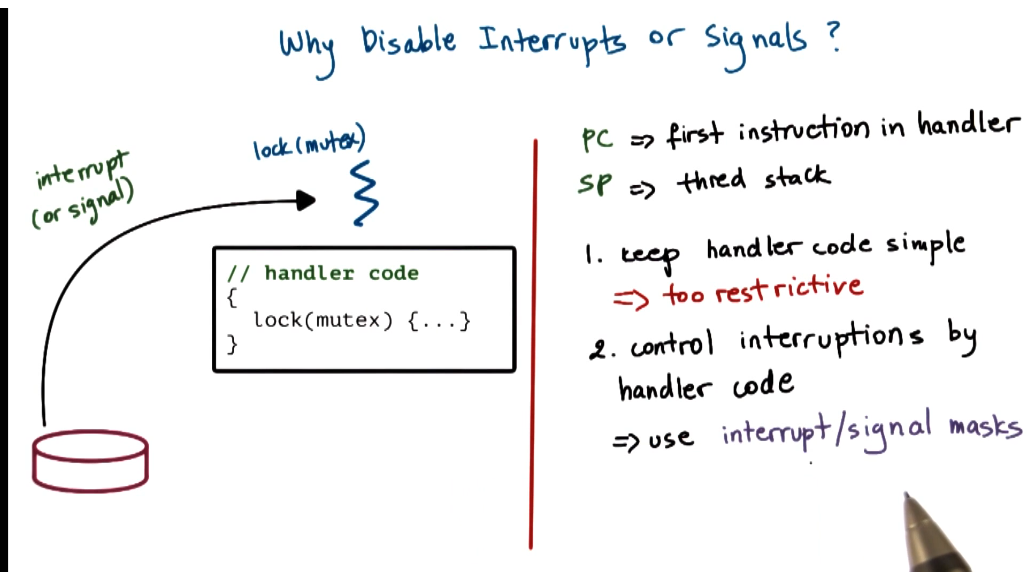 Why Disable Interrupts or Signals ?
interrupt
(or signal)
lock (mutex)
// handler code
{
lock(mutex) {...}
}
PC => first instruction in handler
SP => thred stack
1. keep handler code simple
=> too restrictive
2. control interruptions by
handler code
=> use interrupt/signal masks